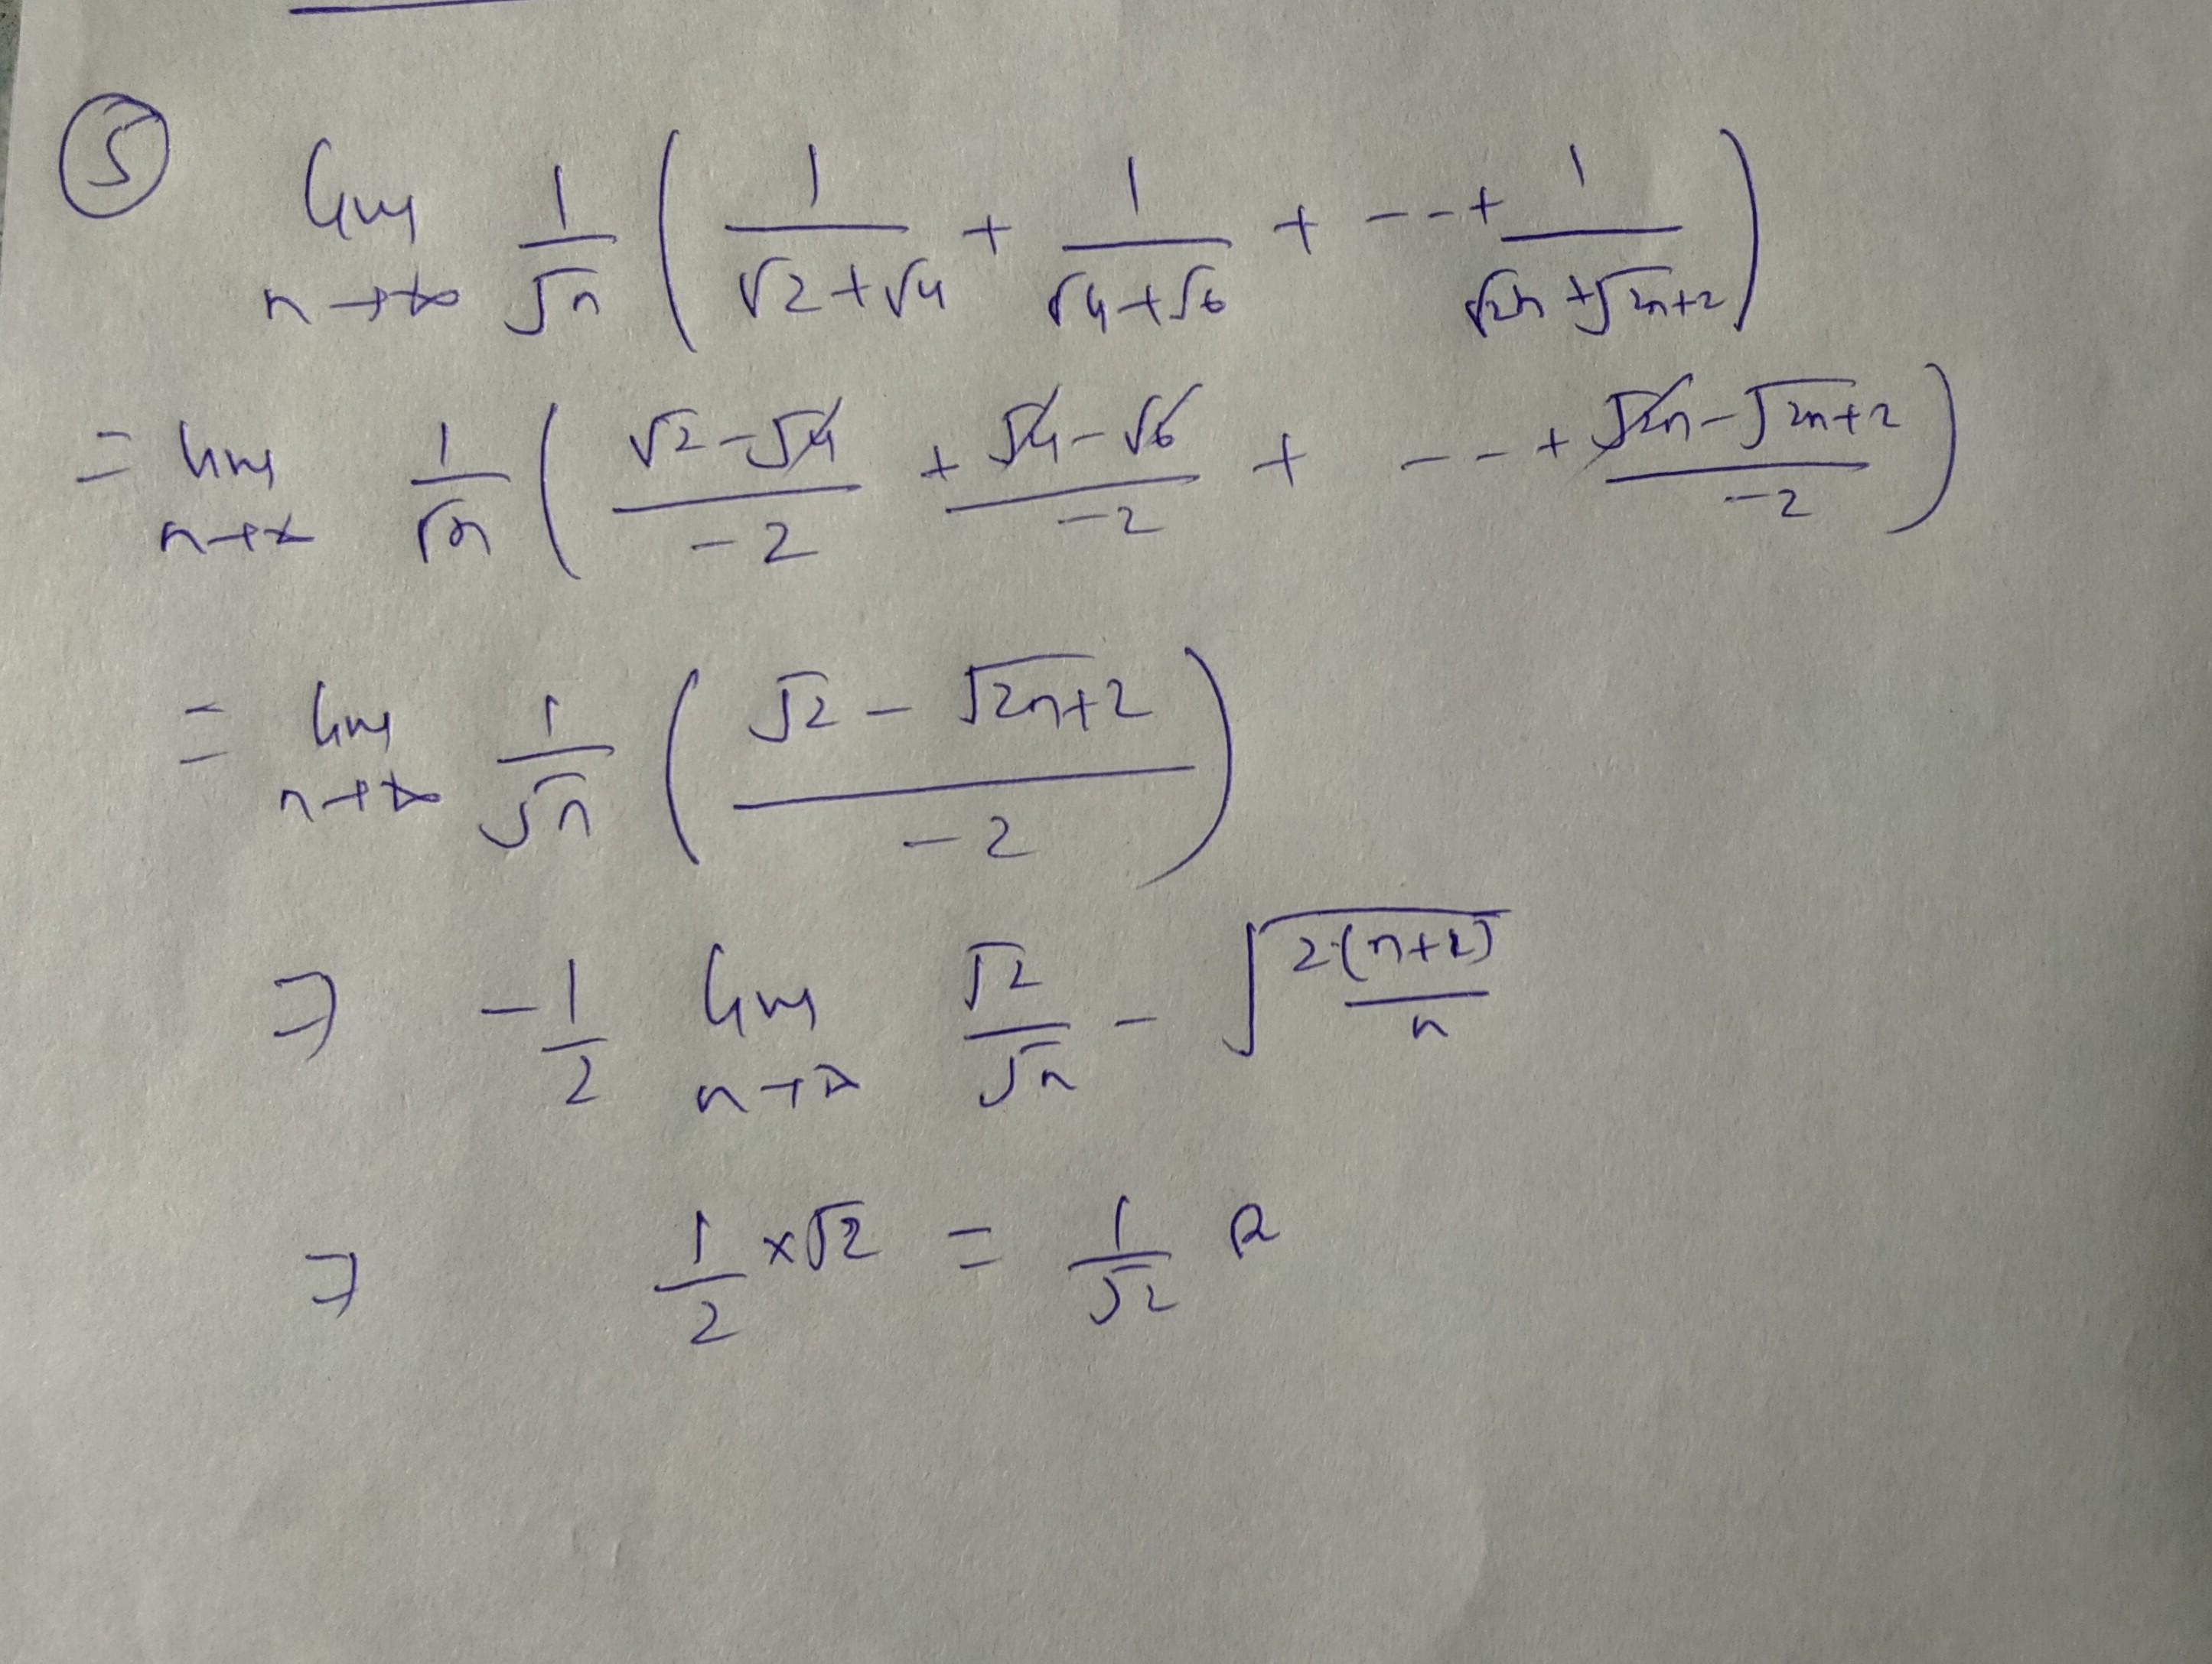 ⑤ lim n→∞ 1/√n ( 1/(√2+√4) + 1/(√4+√6) + ---+ 1/(√2n+√2n+2) )
= lim n→∞ 1/√n ( (√2-√4)/-2 + (√4-√6)/-2 + ---+ (√2n-√2n+2)/-2 )
= lim n→∞ 1/√n ( (√2-√2n+2)/-2 )
⇒ -1/2 lim n→∞ √2/√n - √(2(n+1)/n)
⇒ 1/2 ×√2 = 1/√2